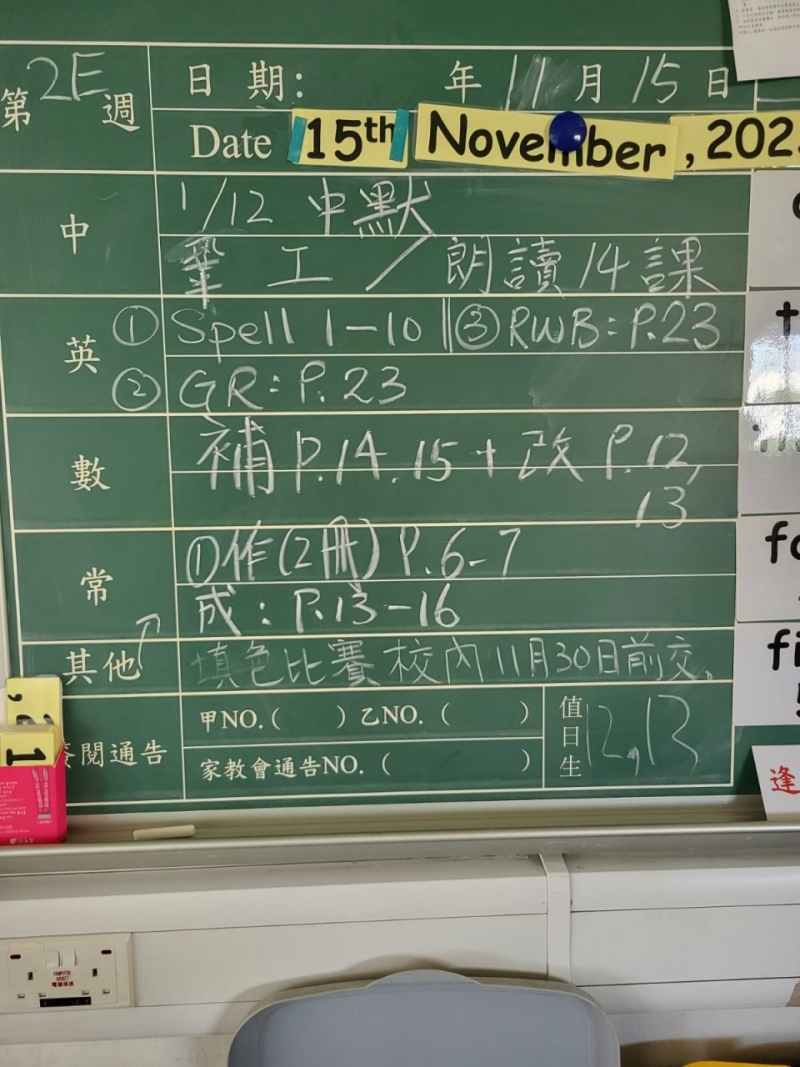 第2E週
日期: 年11月15日
Date 15th November, 202
中
1/12 中默
工／朗讀14課
英
① Spell 1-10 ③ RWB: P.23
② GR: P.23
數
補 P.14.15 + 改 P.12,
13
常
①作(2冊) P.6-7
成: P.13-16
其他
填色比賽 校內11月30日前交。
簽閱通告
甲NO.( ) 乙NO. ( )
家教會通告NO. ( )
值日生
12,13
逢
COMPUTER SOCKET
電腦專座